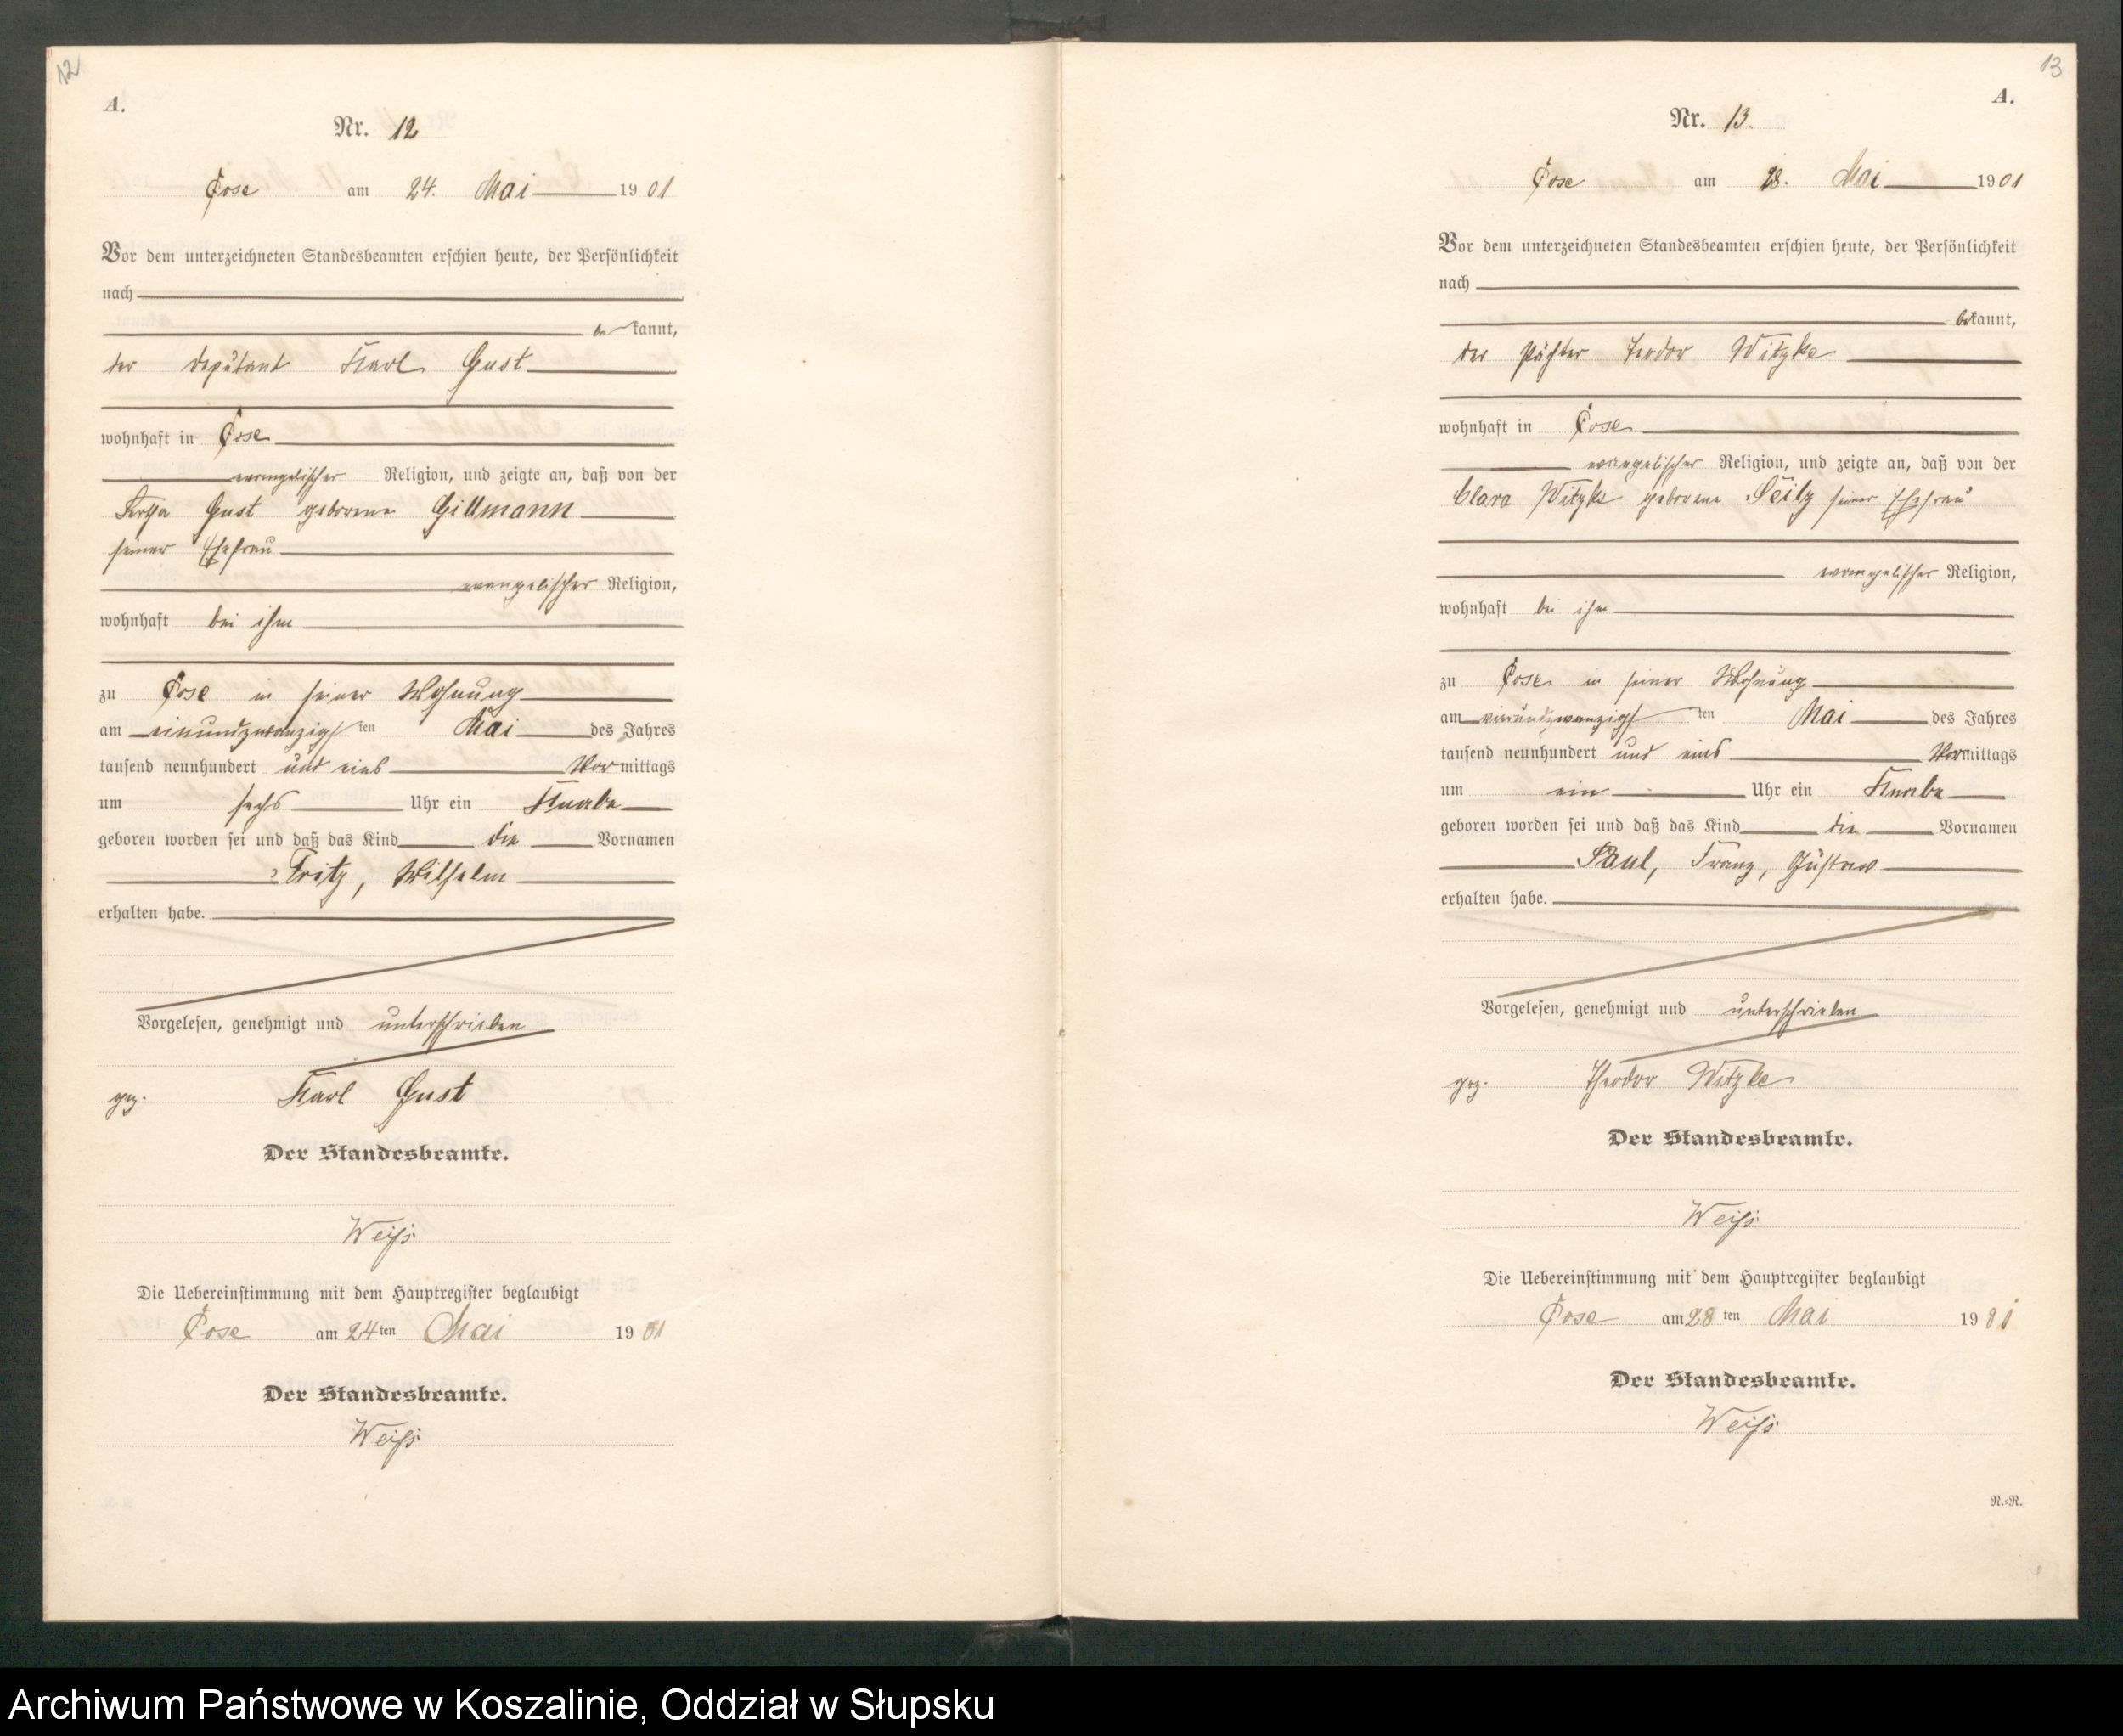 12
A.
Nr. 12
Gose am 24. Mai 1901
Vor dem unterzeichneten Standesbeamten erschien heute, der Persönlichkeit
nach
bekannt,
der Deputant Karl Gust
wohnhaft in Gose
evangelischer Religion, und zeigte an, daß von der
Gust geborene Gillmann
seiner Ehefrau
evangelischer Religion,
wohnhaft bei ihm
zu Gose in seiner Wohnung
am einundzwanzigsten Mai des Jahres
tausend neunhundert und eins Vormittags
um sechs Uhr ein Knabe
geboren worden sei und daß das Kind die Vornamen
Fritz, Wilhelm
erhalten habe.
Vorgelesen, genehmigt und unterschrieben
gez. Karl Gust
Der Standesbeamte.
Weiß
Die Uebereinstimmung mit dem Hauptregister beglaubigt
Gose am 24ten Mai 1901
Der Standesbeamte.
Weiß
13
A.
Nr. 13.
Gose am 28. Mai 1901
Vor dem unterzeichneten Standesbeamten erschien heute, der Persönlichkeit
nach
bekannt,
der Pächter Teodor Witzke
wohnhaft in Gose
evangelischer Religion, und zeigte an, daß von der
Clara Witzke geborene seiner Ehefrau
evangelischer Religion,
wohnhaft bei ihm
zu Gose in seiner Wohnung
am vierundzwanzigsten Mai des Jahres
tausend neunhundert und eins Vormittags
um ein Uhr ein Knabe
geboren worden sei und daß das Kind die Vornamen
Paul, Franz, Gustav
erhalten habe.
Vorgelesen, genehmigt und unterschrieben
gez. Theodor Witzke
Der Standesbeamte.
Weiß
Die Uebereinstimmung mit dem Hauptregister beglaubigt
Gose am 28ten Mai 1901
Der Standesbeamte.
Weiß
N.=N.
Archiwum Państwowe w Koszalinie, Oddział w Słupsku